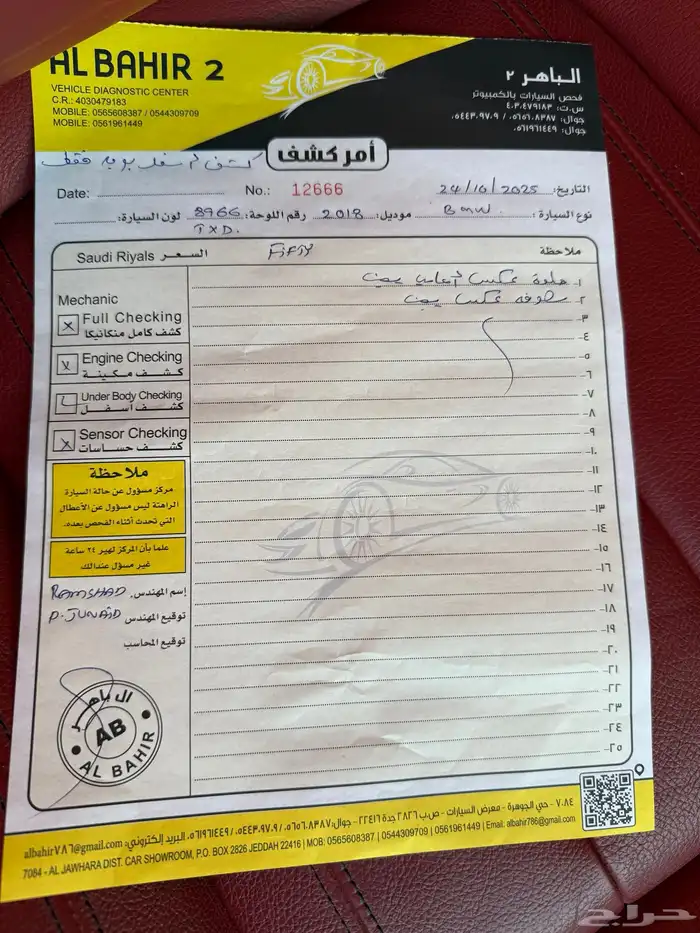 AL BAHIR 2
VEHICLE DIAGNOSTIC CENTER
C.R.: 4030479183
MOBILE: 0565608387 / 0544309709
MOBILE: 0561961449
الباهر ٢
فحص السيارات بالكمبيوتر
س.ت: ٤٠٣٠٤٧٩١٨٣
جوال: ٠٥٦٥٦٠٨٣٨٧ / ٠٥٤٤٣٠٩٧٠٩
جوال: ٠٥٦١٩٦١٤٤٩
أمر كشف
فقط
Date: No.: 12666 التاريخ: 24/10/2025
نوع السيارة: BMW. موديل: 2018 رقم اللوحة: 8966 لون السيارة:
TXD.
Saudi Riyals السعر FIFTY ملاحظة
Mechanic
Full Checking
كشف كامل منكانيكا
Engine Checking
كشف مكينة
Under Body Checking
كشف أسفل
Sensor Checking
كشف حساسات
ملاحظة
مركز مسؤول عن حالة السيارة
الراهنة ليس مسؤول عن الأعطال
التي تحدث أثناء الفحص بعده.
علما بأن المركز لهير ٢٤ ساعة
غير مسؤل عندالك
إسم المهندس. RAMSHAD
توقيع المهندس P. JUNAID
توقيع المحاسب
١- عكس يمين
٢- عكس يمين
٣-
٤-
٥-
٦-
٧-
٨-
٩-
١٠-
١١-
١٢-
١٣-
١٤-
١٥-
١٦-
١٧-
١٨-
١٩-
٢٠-
٢١-
٢٢-
٢٣-
٢٤-
٢٥-
الباهر
AB
AL BAHIR
٧٠٨٤ - حي الجوهرة - معرض السيارات - ص.ب ٢٨٢٦ جدة ٢٢٤١٦ - جوال: ٠٥٦٥٦٠٨٣٨٧ / ٠٥٤٤٣٠٩٧٠٩ / ٠٥٦١٩٦١٤٤٩ البريد إلكتروني: albahir٧٨٦@gmail.com
7084 - AL JAWHARA DIST. CAR SHOWROOM, P.O. BOX 2826 JEDDAH 22416 | MOB: 0565608387 | 0544309709 | 0561961449 | Email: albahir786@gmail.com
حراج